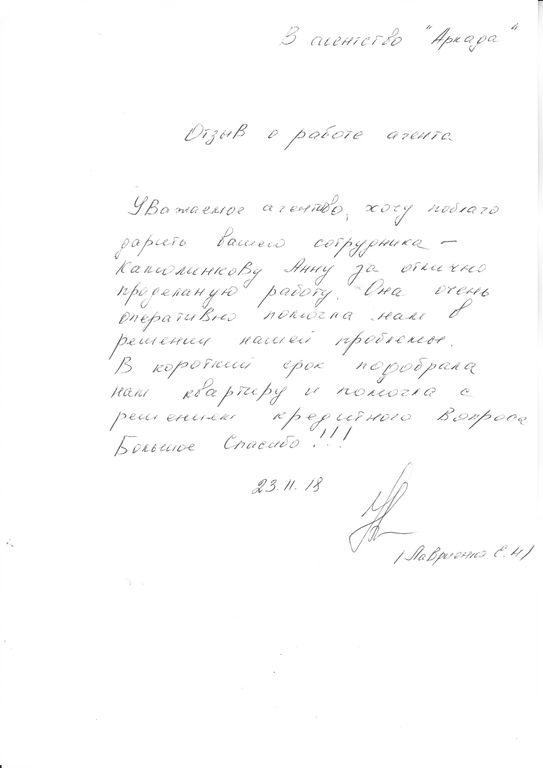 В агентство "Аркада"
Отзыв о работе агента
Уважаемое агентво, хочу поблаго
дарить вашего сотрудника –
Анну за отлично
проделаную работу. Она очень
оперативно помогла нам в
решении нашей проблемы.
В короткий срок подобрала
нам квартиру и помогла с
решением кредитного вопроса
Большое Спасибо!!!
23.11.18